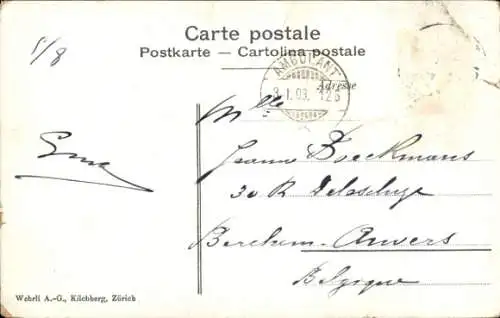 Carte postale
Postkarte — Cartolina postale
5/8
AMBULANT
1.03.
Adresse
Mlle
Jeanne Boeckmans
30 R Delescluze
Berchem-Anvers
Belgique
Wehrli A.-G., Kilchberg, Zürich